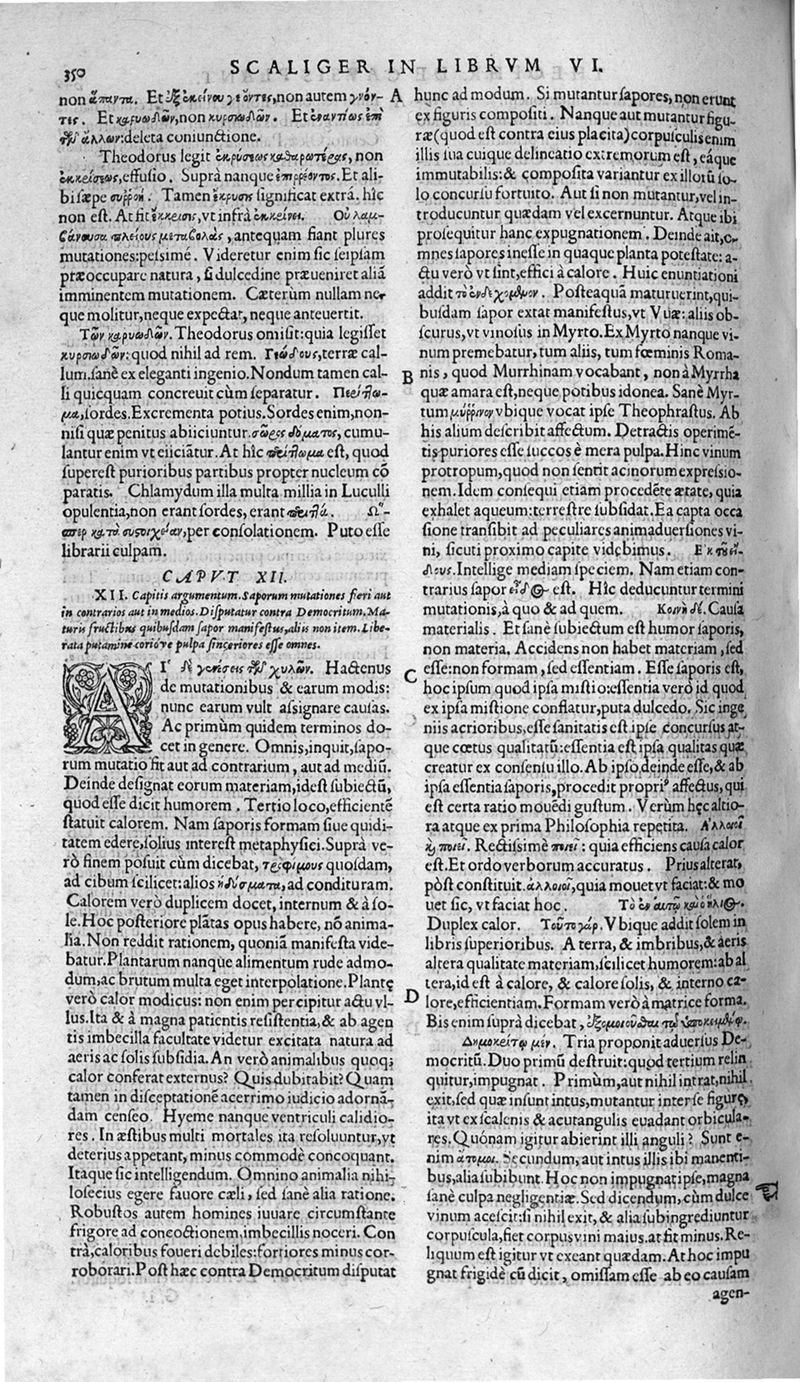 350
SCALIGER IN LIBRVM VI.
non ἅπαντα. Et ἐξ ἐκείνου γεόντες, non autem γνόν-
τες. Et καρυωδῶν, non κυρσιωδῶν. Et ἐναντίως ἐπὶ
τῶν ἄλλων: deleta coniunctione.
Theodorus legit ἐκρύσεως καθαρωτέρας, non
ἐκκείσεως, effusio. Suprà nanque ἐπιῤῥέοντος. Et ali-
bi sæpe σύῤῥοη. Tamen ἔκρυσις significat extrá. hîc
non est. At fit ἔκκεισις, vt infrà ἐκκείνει. Οὐ λαμ-
βάνουσα πλείους μεταβολὰς, antequam fiant plures
mutationes: peſsimè. Videretur enim ſic ſeipſam
præoccupare natura, ſi dulcedine præueniret aliã
imminentem mutationem. Cæterùm nullam ne-
que molitur, neque expectat, neque anteuertit.
Τῶν καρυωδῶν. Theodorus omiſit: quia legiſſet
κυρσιωδῶν: quod nihil ad rem. Γεώδους, terræ cal-
lum. ſanè ex eleganti ingenio. Nondum tamen cal-
li quicquam concreuit cùm ſeparatur. Περίτλω-
μα, ſordes. Excrementa potius. Sordes enim, non-
niſi quæ penitus abiiciuntur. σωρὸς δόματος, cumu-
lantur enim vt eiiciãtur. At hîc περίτλωμα est, quod
ſupereſt purioribus partibus propter nucleum cõ
paratis. Chlamydum illa multa millia in Luculli
opulentia, non erant ſordes, erant περιτλά. Ὥσ-
περ κατὰ συστοιχείαν, per conſolationem. Puto eſſe
librarii culpam.
CAPVT XII.
XII. Capitis argumentum. Saporum mutationes fieri aut
in contrarios aut in medios. Diſputatur contra Democritum. Ma-
turis fructibus quibuſdam ſapor manifeſtus, aliis non item. Libe-
rata putamine coriove pulpa ſinceriores eſſe omnes.
ΑΙ´ δὲ γενέσεις τῶν χυλῶν. Hactenus
de mutationibus & earum modis:
nunc earum vult aſsignare cauſas.
Ac primùm quidem terminos do-
cet in genere. Omnis, inquit, ſapo-
rum mutatio fit aut ad contrarium, aut ad mediũ.
Deinde deſignat eorum materiam, ideſt ſubiectũ,
quod eſſe dicit humorem. Tertio loco, efficientẽ
ſtatuit calorem. Nam ſaporis formam ſiue quidi-
tatem edere, ſolius intereſt metaphyſici. Suprà ve-
rò finem poſuit cùm dicebat, τροφίμους quoſdam,
ad cibum ſcilicet: alios ἡδύσματα, ad condituram.
Calorem verò duplicem docet, internum & à ſo-
le. Hoc poſteriore plãtas opus habere, nõ anima-
lia. Non reddit rationem, quoniã manifeſta vide-
batur. Plantarum nanque alimentum rude admo-
dum, ac brutum multa eget interpolatione. Plantę
verò calor modicus: non enim percipitur actu vl-
lus. Ita & à magna patientis reſiſtentia, & ab agen
tis imbecilla facultate videtur excitata natura ad
aeris ac ſolis ſubſidia. An verò animalibus quoq;
calor conferat externus? Quis dubitabit? Quam
tamen in diſceptationẽ acerrimo iudicio adornã-
dam cenſeo. Hyeme nanque ventriculi calidio-
res. In æſtibus multi mortales ita reſoluuntur, vt
deterius appetant, minus commodè concoquant.
Itaque ſic intelligendum. Omnino animalia nihi-
loſecius egere fauore cæli, ſed ſanè alia ratione.
Robuſtos autem homines iuuare circumſtante
frigore ad concoctionem, imbecillis noceri. Con
trà, caloribus foueri debiles: fortiores minus cor-
roborári. Poſt hæc contra Democritum diſputat
A
hunc ad modum. Si mutantur ſapores, non erunt
ex figuris compoſiti. Nanque aut mutantur figu-
ræ (quod eſt contra eius placita) corpuſculis enim
illis ſua cuique delineatio extremorum eſt, eáque
immutabilis: & compoſita variantur ex illorũ ſo-
lo concurſu fortuito. Aut ſi non mutantur, vel in-
troducuntur quædam vel excernuntur. Atque ibi
proſequitur hanc expugnationem. Deinde ait, o-
mnes ſapores ineſſe in quaque planta poteſtate: a-
ctu verò vt ſint, effici à calore. Huic enuntiationi
addit τὸ ἐνδεχομένον. Poſteaquã maturuerint, qui-
buſdam ſapor extat manifeſtus, vt Vuæ: aliis ob-
ſcurus, vt vinoſus in Myrto. Ex Myrto nanque vi-
num premebatur, tum aliis, tum fœminis Roma-
B
nis, quod Murrhinam vocabant, non à Myrrha
quæ amara eſt, neque potibus idonea. Sanè Myr-
tum μύῤῥινον vbique vocat ipſe Theophraſtus. Ab
his alium deſcribit affectum. Detractis operimẽ-
tis puriores eſſe ſuccos è mera pulpa. Hinc vinum
protropum, quod non ſentit acinorum expreſsio-
nem. Idem conſequi etiam procedẽte ætate, quia
exhalet aqueum: terreſtre ſubſidat. Ea capta occa
ſione tranſibit ad peculiares animaduerſiones vi-
ni, ſicuti proximo capite vidębimus. Ἐκ τοῦ εἴ-
δους. Intellige mediam ſpeciem. Nam etiam con-
trarius ſapor εἶδος eſt. Hîc deducuntur termini
mutationis, à quo & ad quem. Κοινὴ δέ. Cauſa
materialis. Et ſanè ſubiectum eſt humor ſaporis,
non materia. Accidens non habet materiam, ſed
C
eſſe: non formam, ſed eſſentiam. Eſſe ſaporis eſt,
hoc ipſum quod ipſa miſtio: eſſentia verò id quod
ex ipſa miſtione conflatur, puta dulcedo. Sic inge
niis acrioribus, eſſe ſanitatis eſt ipſe concurſus at-
que cœtus qualitatũ: eſſentia eſt ipſa qualitas quæ
creatur ex conſenſu illo. Ab ipſo deinde eſſe, & ab
ipſa eſſentia ſaporis, procedit propri⁹ affectus, qui
eſt certa ratio mouẽdi guſtum. Verùm hęc altio-
ra atque ex prima Philoſophia repetita. Ἀλλοιοῖ
καὶ ποιεῖ. Rectiſsimè ποιεῖ: quia efficiens cauſa calor
eſt. Et ordo verborum accuratus. Prius alterat,
pòſt conſtituit. ἀλλοιοῖ, quia mouet vt faciat: & mo
uet ſic, vt faciat hoc. Τὸ ἐν αὐτῷ καὶ ὁ ἥλιος.
Duplex calor. Τοῦτο γὰρ. Vbique addit ſolem in
libris ſuperioribus. A terra, & imbribus, & aëris
altera qualitate materiam, ſcilicet humorem: ab al
tera, id eſt à calore, & calore ſolis, & interno ca-
D
lore, efficientiam. Formam verò à matrice forma.
Bis enim ſuprà dicebat, ἐξομοιοῦσθαι τῷ ὑποκειμένῳ.
Δημοκρίτῳ μέν. Tria proponit aduerſus De-
mocritũ. Duo primũ deſtruit: quod tertium relin
quitur, impugnat. Primùm, aut nihil intrat, nihil
exit, ſed quæ inſunt intus, mutantur inter ſe figurę,
ita vt ex ſcalenis & acutangulis euadant orbicula-
res. Quónam igitur abierint illi anguli? Sunt e-
nim ἄτομοι. Secundum, aut intus illis ibi manenti-
bus, alia ſubibunt. Hoc non impugnat ipſe, magna
ſanè culpa negligentiæ. Sed dicendum, cùm dulce
vinum aceſcit: ſi nihil exit, & alia ſubingrediuntur
corpuſcula, fiet corpus vini maius. at fit minus. Re-
liquum eſt igitur vt exeant quædam. At hoc impu
gnat frigidè cũ dicit, omiſſam eſſe ab eo cauſam
agen-